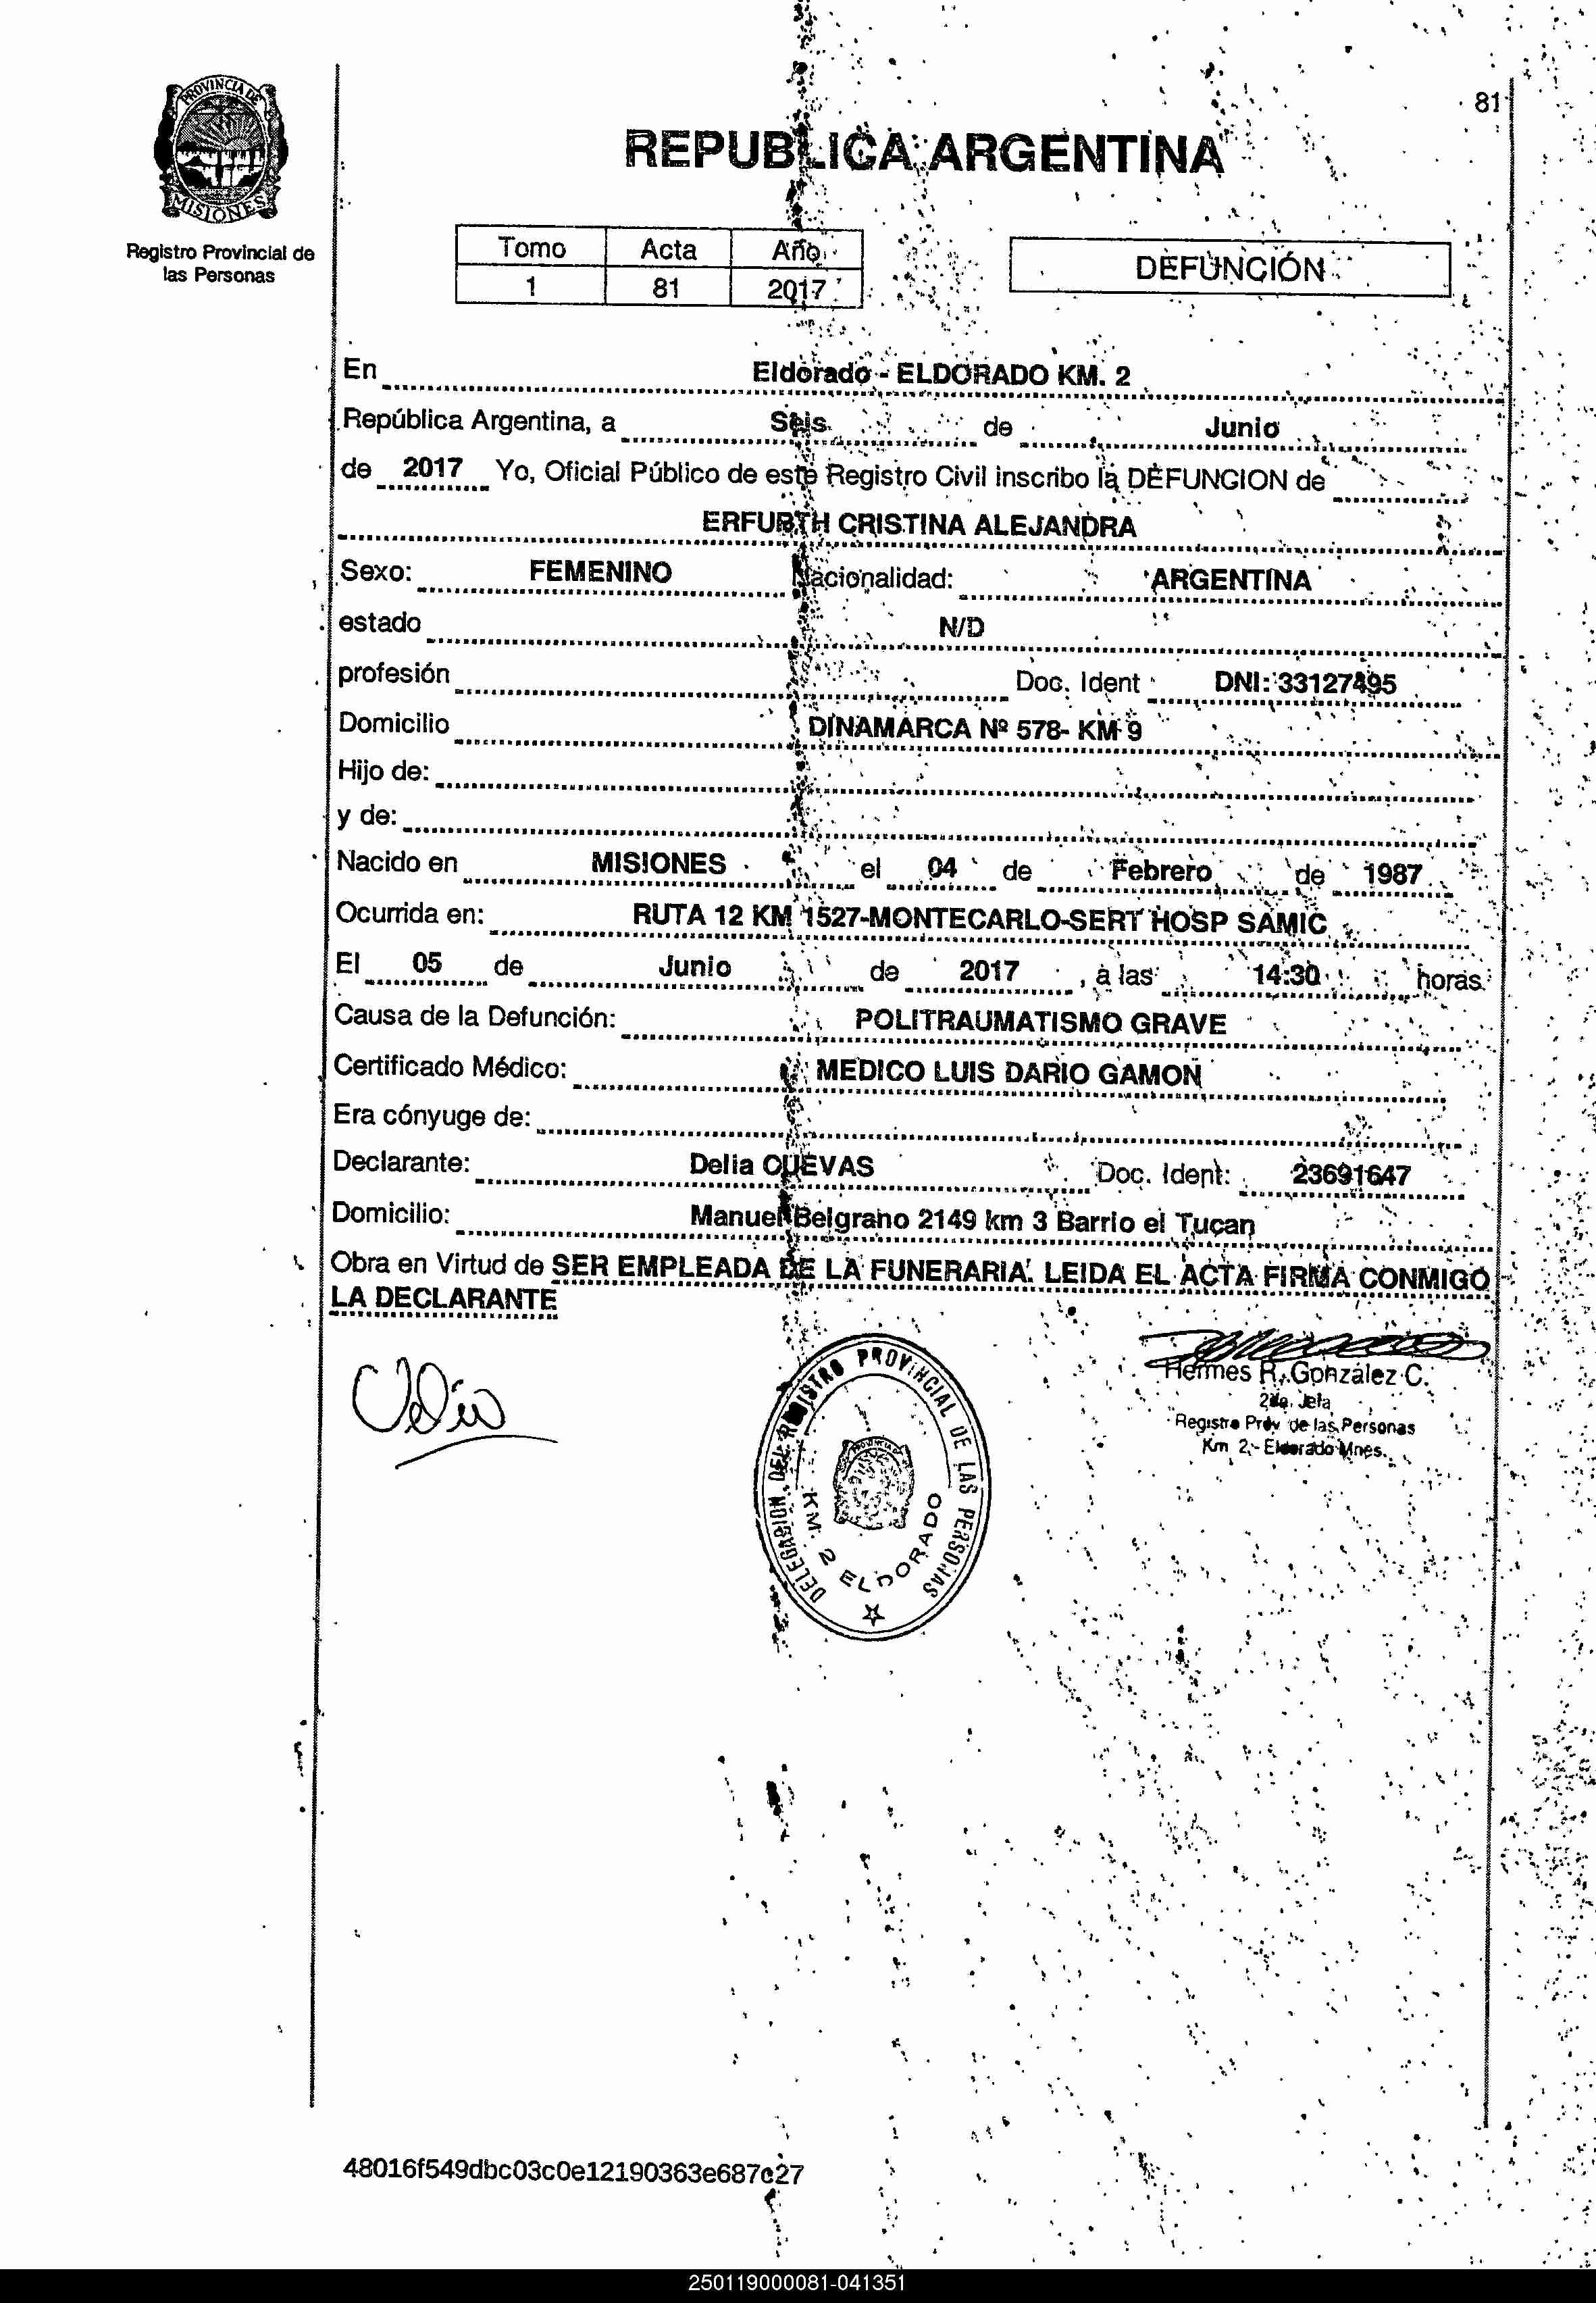 81
PROVINCIA DE
MISIONES
REPUBLICA ARGENTINA
Registro Provincial de
las Personas
Tomo Acta Año
1 81 2017
DEFUNCIÓN
En Eldorado - ELDORADO KM. 2
República Argentina, a Seis de Junio
de 2017 Yo, Oficial Público de este Registro Civil inscribo la DEFUNCION de
ERFURTH CRISTINA ALEJANDRA
Sexo: FEMENINO Nacionalidad: ARGENTINA
estado N/D
profesión Doc. Ident DNI: 33127495
Domicilio DINAMARCA Nº 578- KM 9
Hijo de:
y de:
Nacido en MISIONES el 04 de Febrero de 1987
Ocurrida en: RUTA 12 KM 1527-MONTECARLO-SERT HOSP SAMIC
El 05 de Junio de 2017 , a las 14:30 horas.
Causa de la Defunción: POLITRAUMATISMO GRAVE
Certificado Médico: MEDICO LUIS DARIO GAMON
Era cónyuge de:
Declarante: Delia CUEVAS Doc. Ident: 23691647
Domicilio: Manuel Belgrano 2149 km 3 Barrio el Tucan
Obra en Virtud de SER EMPLEADA DE LA FUNERARIA. LEIDA EL ACTA FIRMA CONMIGO
LA DECLARANTE
Hermes R. González C.
2da. Jefa
Registro Prov de las Personas
Km 2,- Eldorado Mnes.
DELEGACION DEL REGISTRO PROVINCIAL DE LAS PERSONAS
KM. 2 ELDORADO
48016f549dbc03c0e12190363e687c27
250119000081-041351